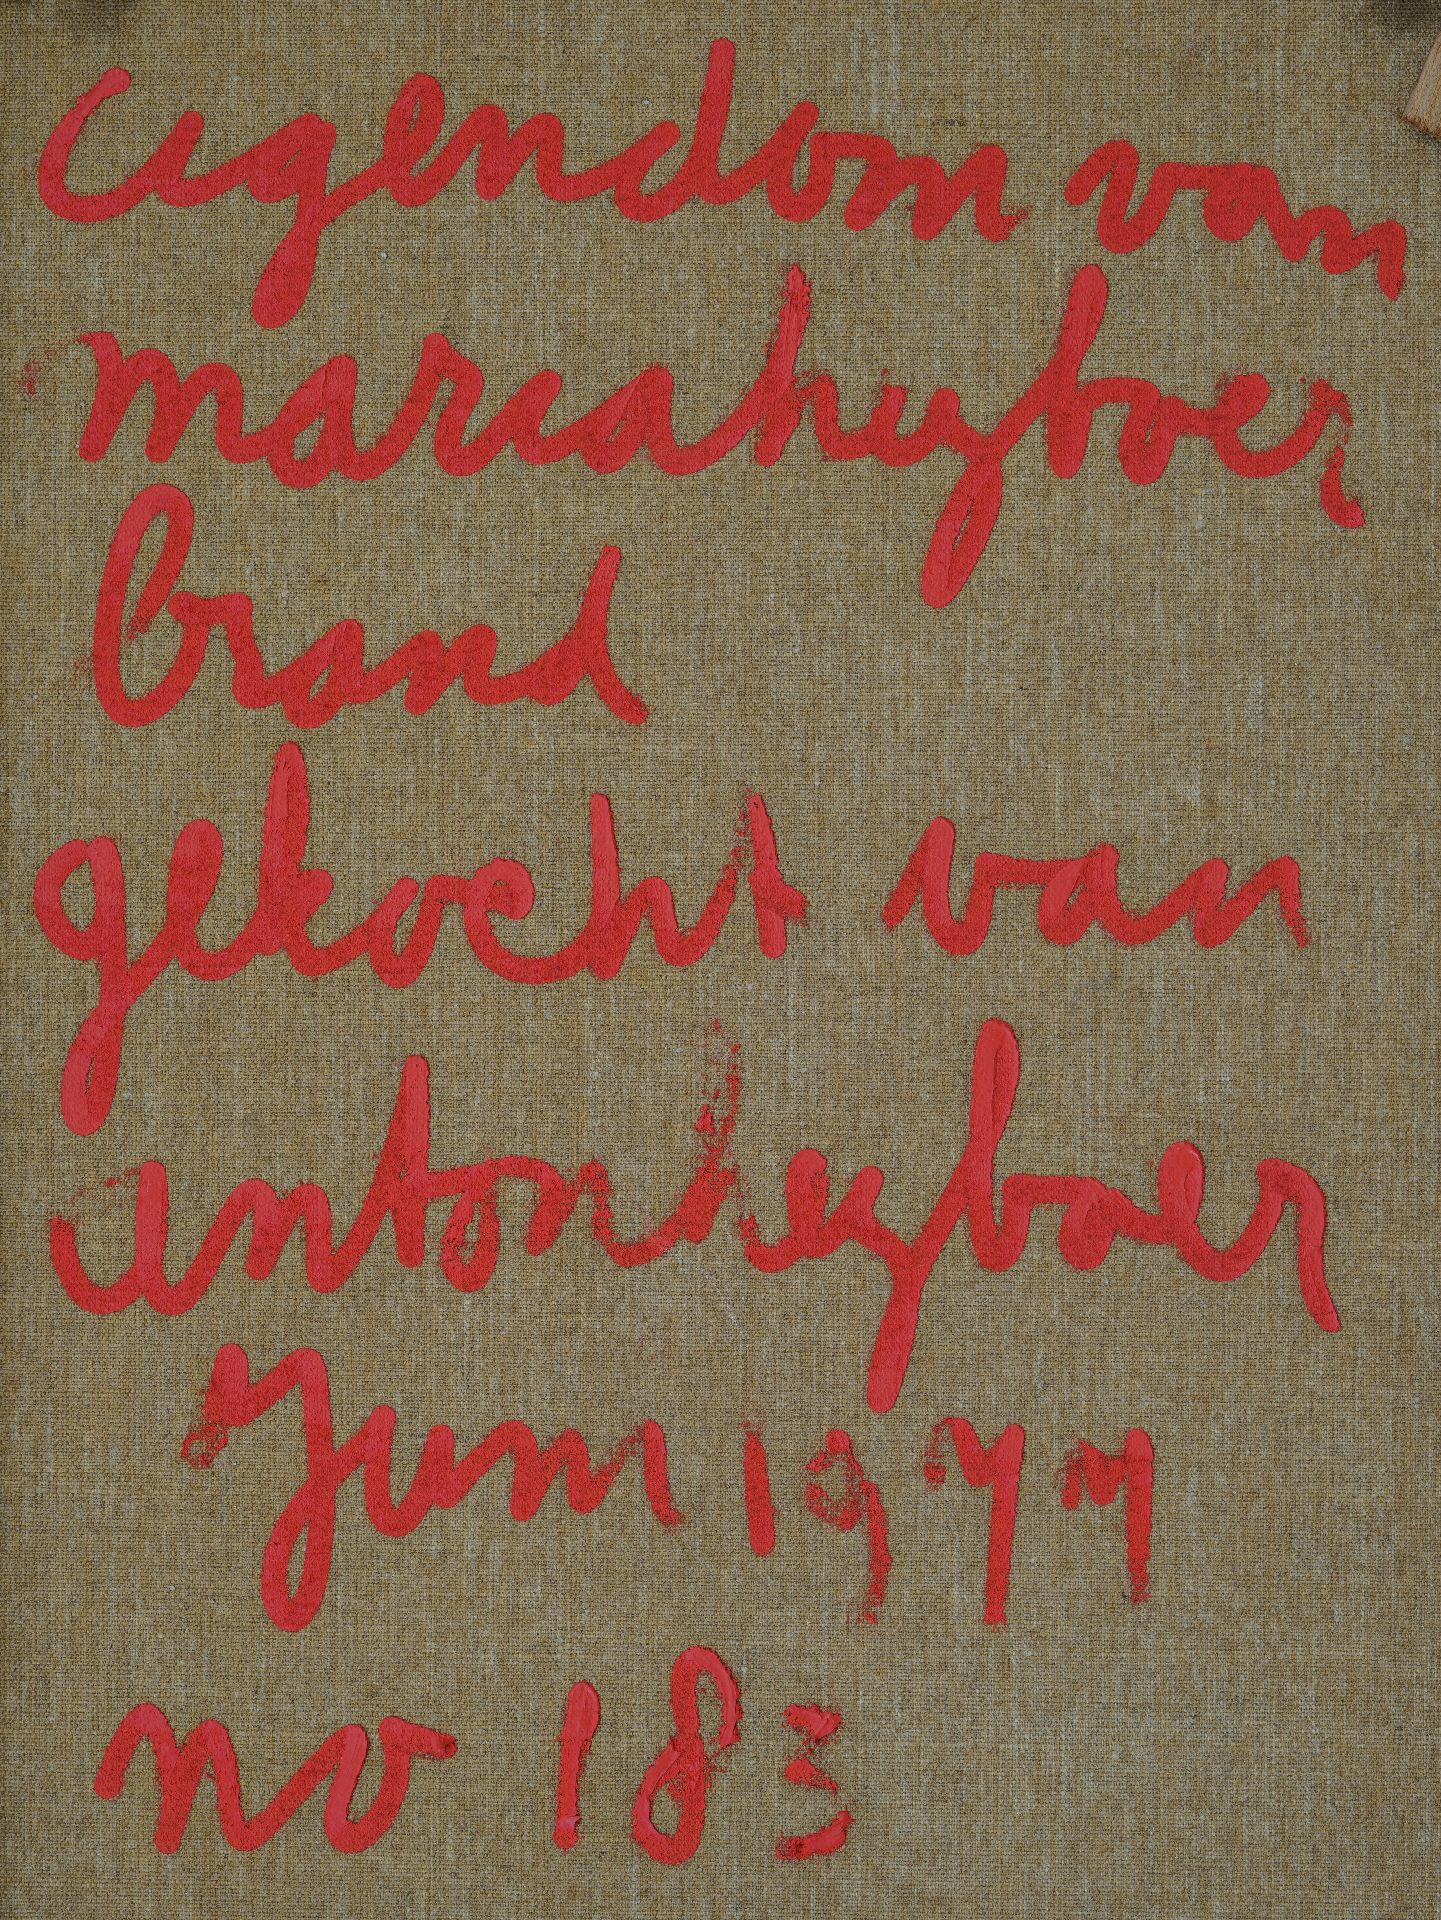 eigendom van
maria heyboer
brand
gekocht van
anton heyboer
Juni 1977
no 183